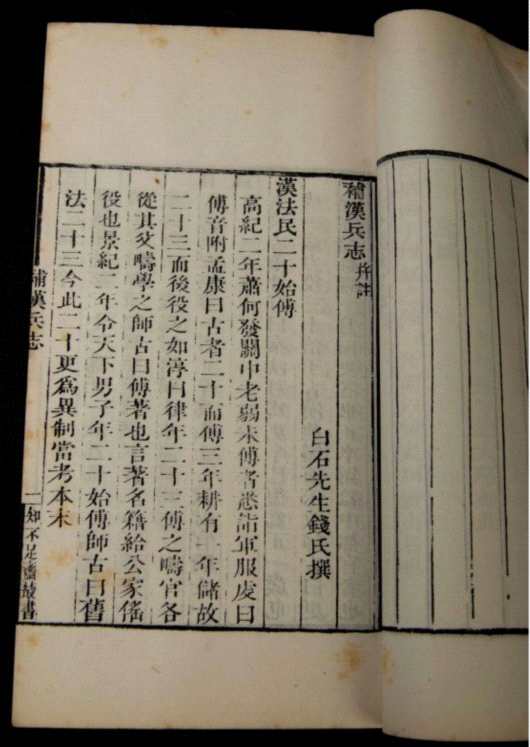 補漢兵志 并註
白石先生錢氏撰
漢法民二十始傅
高紀二年蕭何發關中老弱未傅者悉詣軍服虔曰
傅音附孟康曰古者二十而傅三年耕有一年儲故
二十三而後役之如淳曰律年二十三傅之疇官各
從其父疇學之師古曰傅著也言著名籍給公家傜
役也景紀二年令天下男子年二十始傅師古曰舊
法二十三今此二十更爲異制當考本末
補漢兵志
一
知不足齋叢書